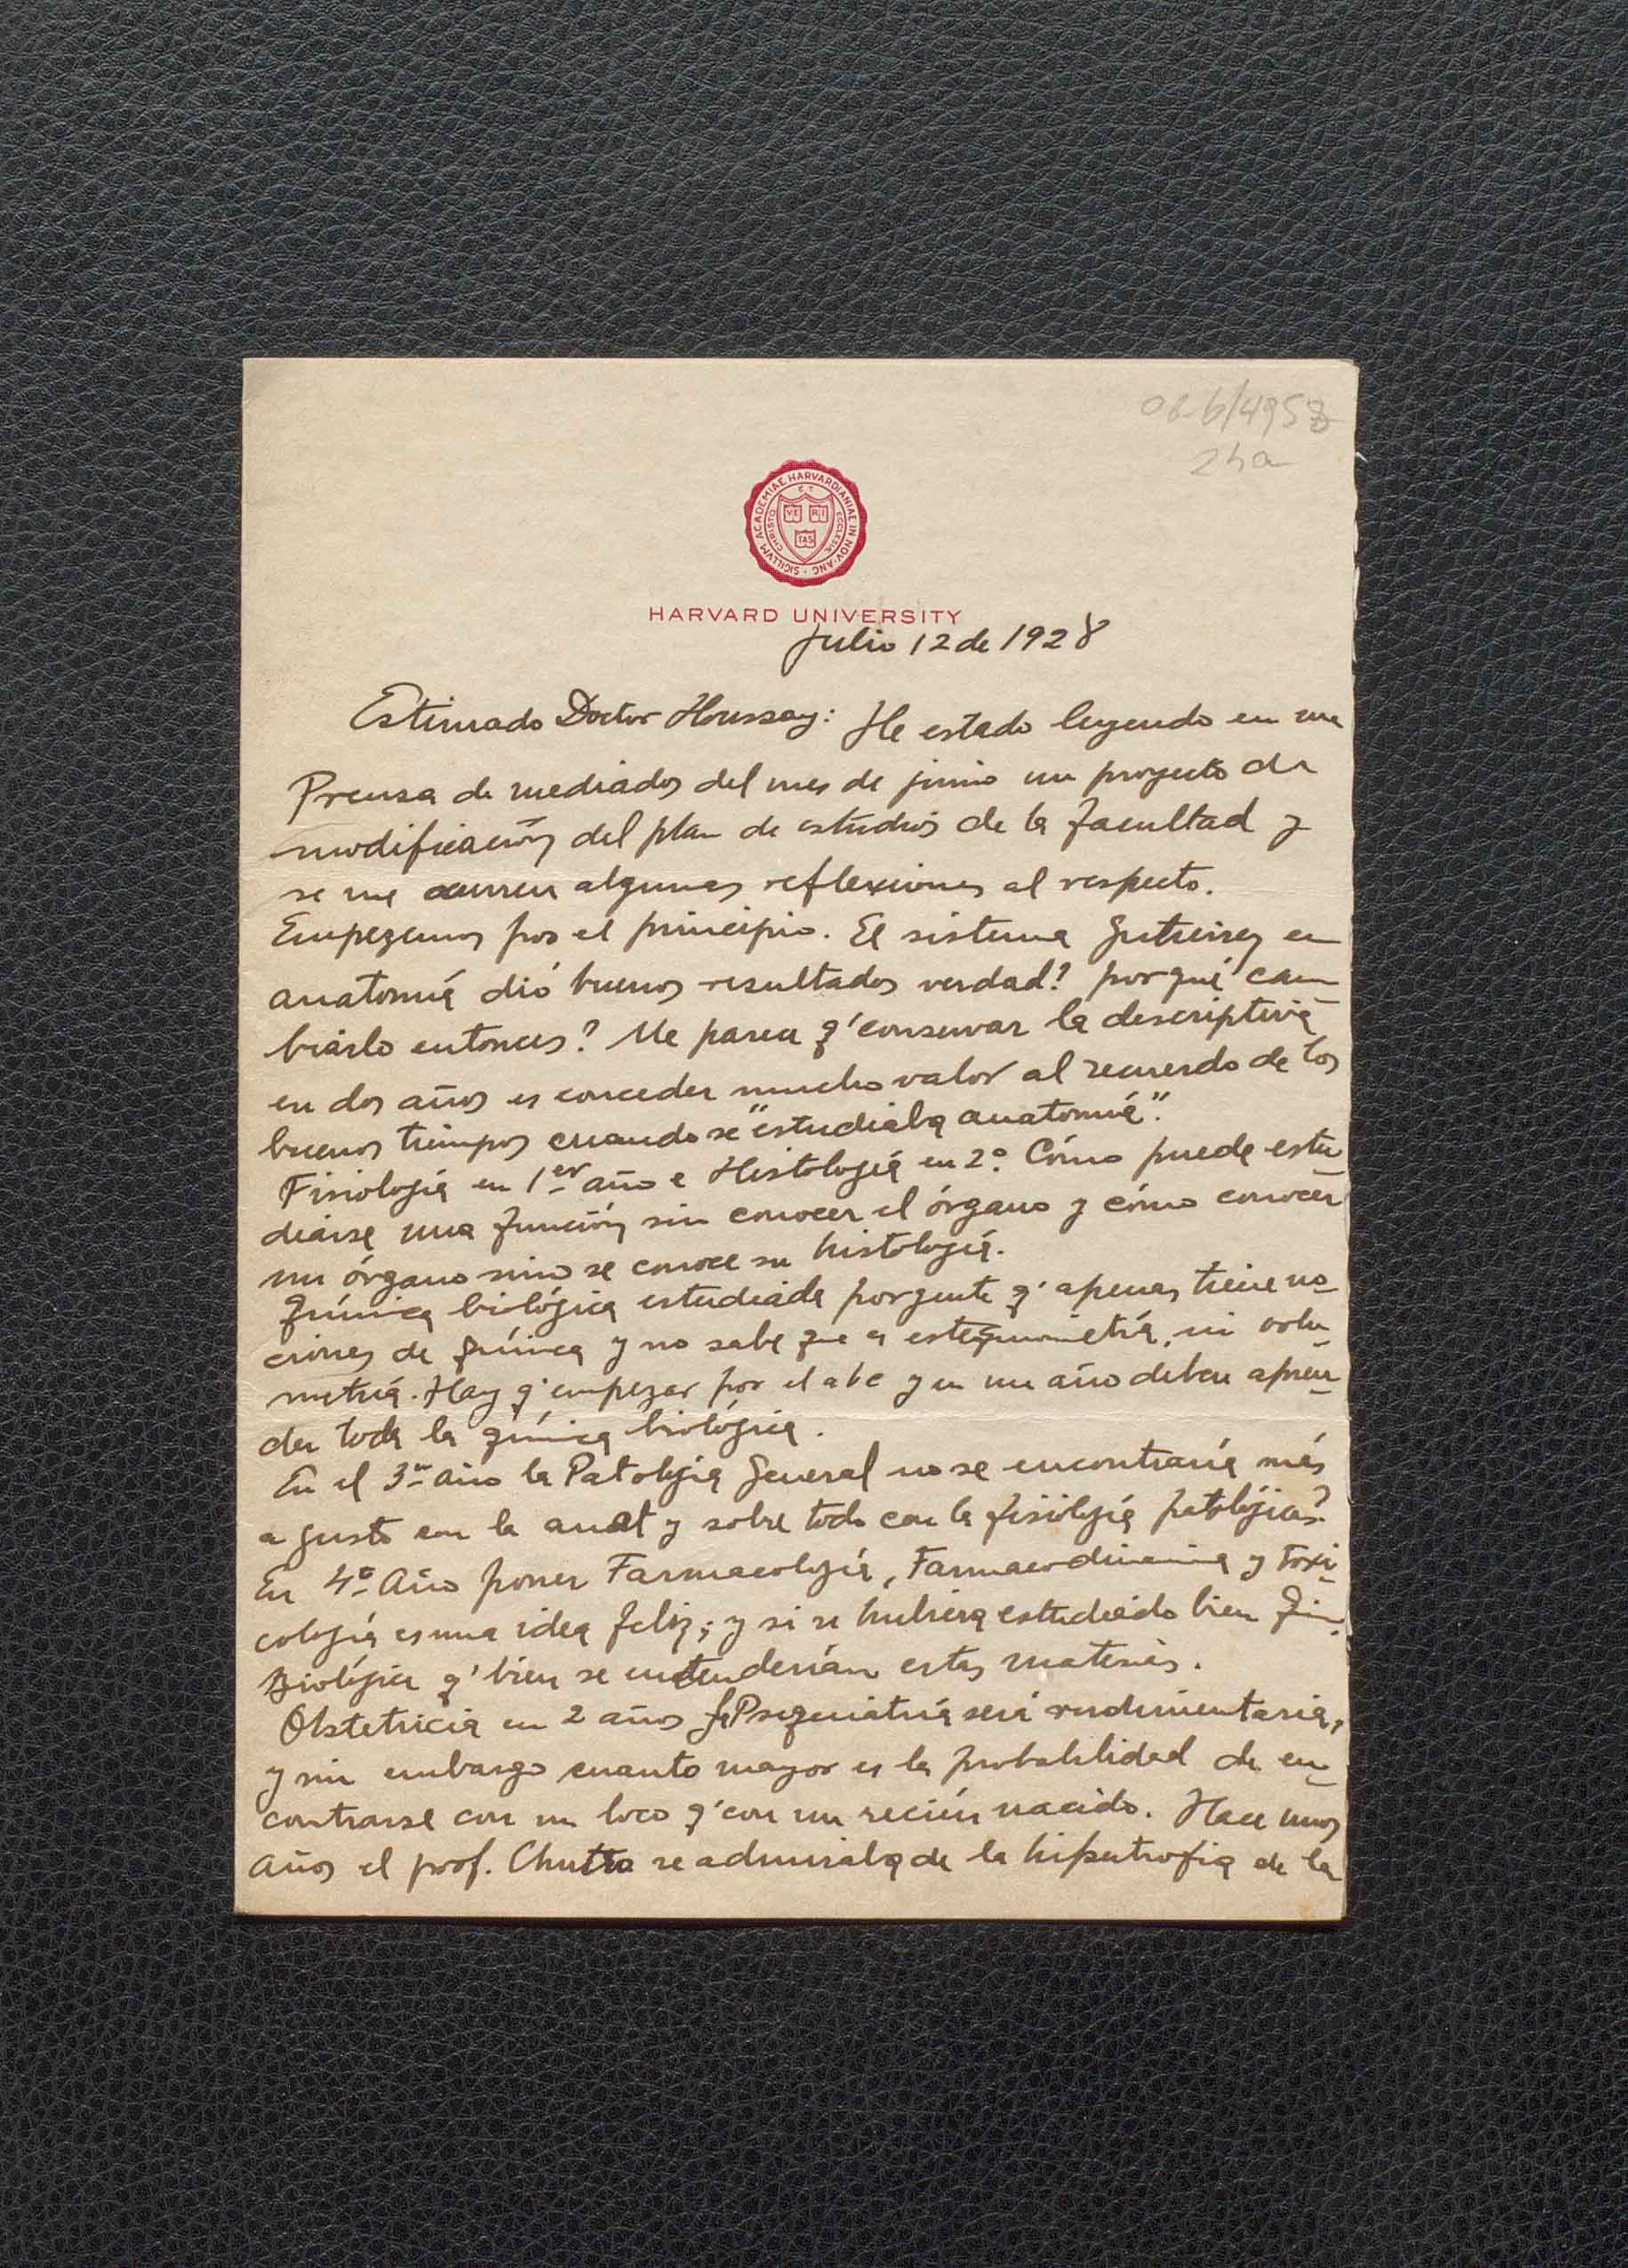 08-6/4958
24a
SIGILLVM ACADEMIAE HARVARDIANAE IN NOV. ANG.
CHRISTO ET ECCLESIAE
VE RI TAS
HARVARD UNIVERSITY
Julio 12 de 1928
Estimado Doctor Houssay: He estado leyendo en una
Prensa de mediados del mes de junio un proyecto de
modificación del plan de estudios de la facultad y
se me ocurren algunas reflexiones al respecto.
Empezemos por el principio. El sistema Gutierrez en
anatomía dió buenos resultados verdad? porqué cam
biarlo entonces? Me parece q' conservar la descriptiva
en dos años es conceder mucho valor al recuerdo de los
buenos tiempos cuando se "estudiaba anatomía".
Fisiología en 1er año e Histología en 2º. Cómo puede estu
diarse una función sin conocer el órgano y cómo conocer
un órgano sino se conoce su histología.
Química biológica estudiada por gente q' apenas tiene no
ciones de química y no sabe que es estequiometría, ni volu
metría. Hay q' empezar por el abc y en un año deben apren
der toda la química biológica.
En el 3er año la Patología General no se encontraría más
a gusto con la anat y sobre todo con la fisiología patológicas?
En 4º Año poner Farmacología, Farmacodinamia y Toxi
cología es una idea feliz; y si se hubiera estudiado bien Quím.
Biológica q' bien se entenderían estas materias.
Obstetricia en 2 años la Psiquiatría será rudimentaria,
y sin embargo cuanto mayor es la probabilidad de en
contrarse con un loco q' con un recién nacido. Hace unos
años el prof. Chutro se admiraba de la hipertrofia de la